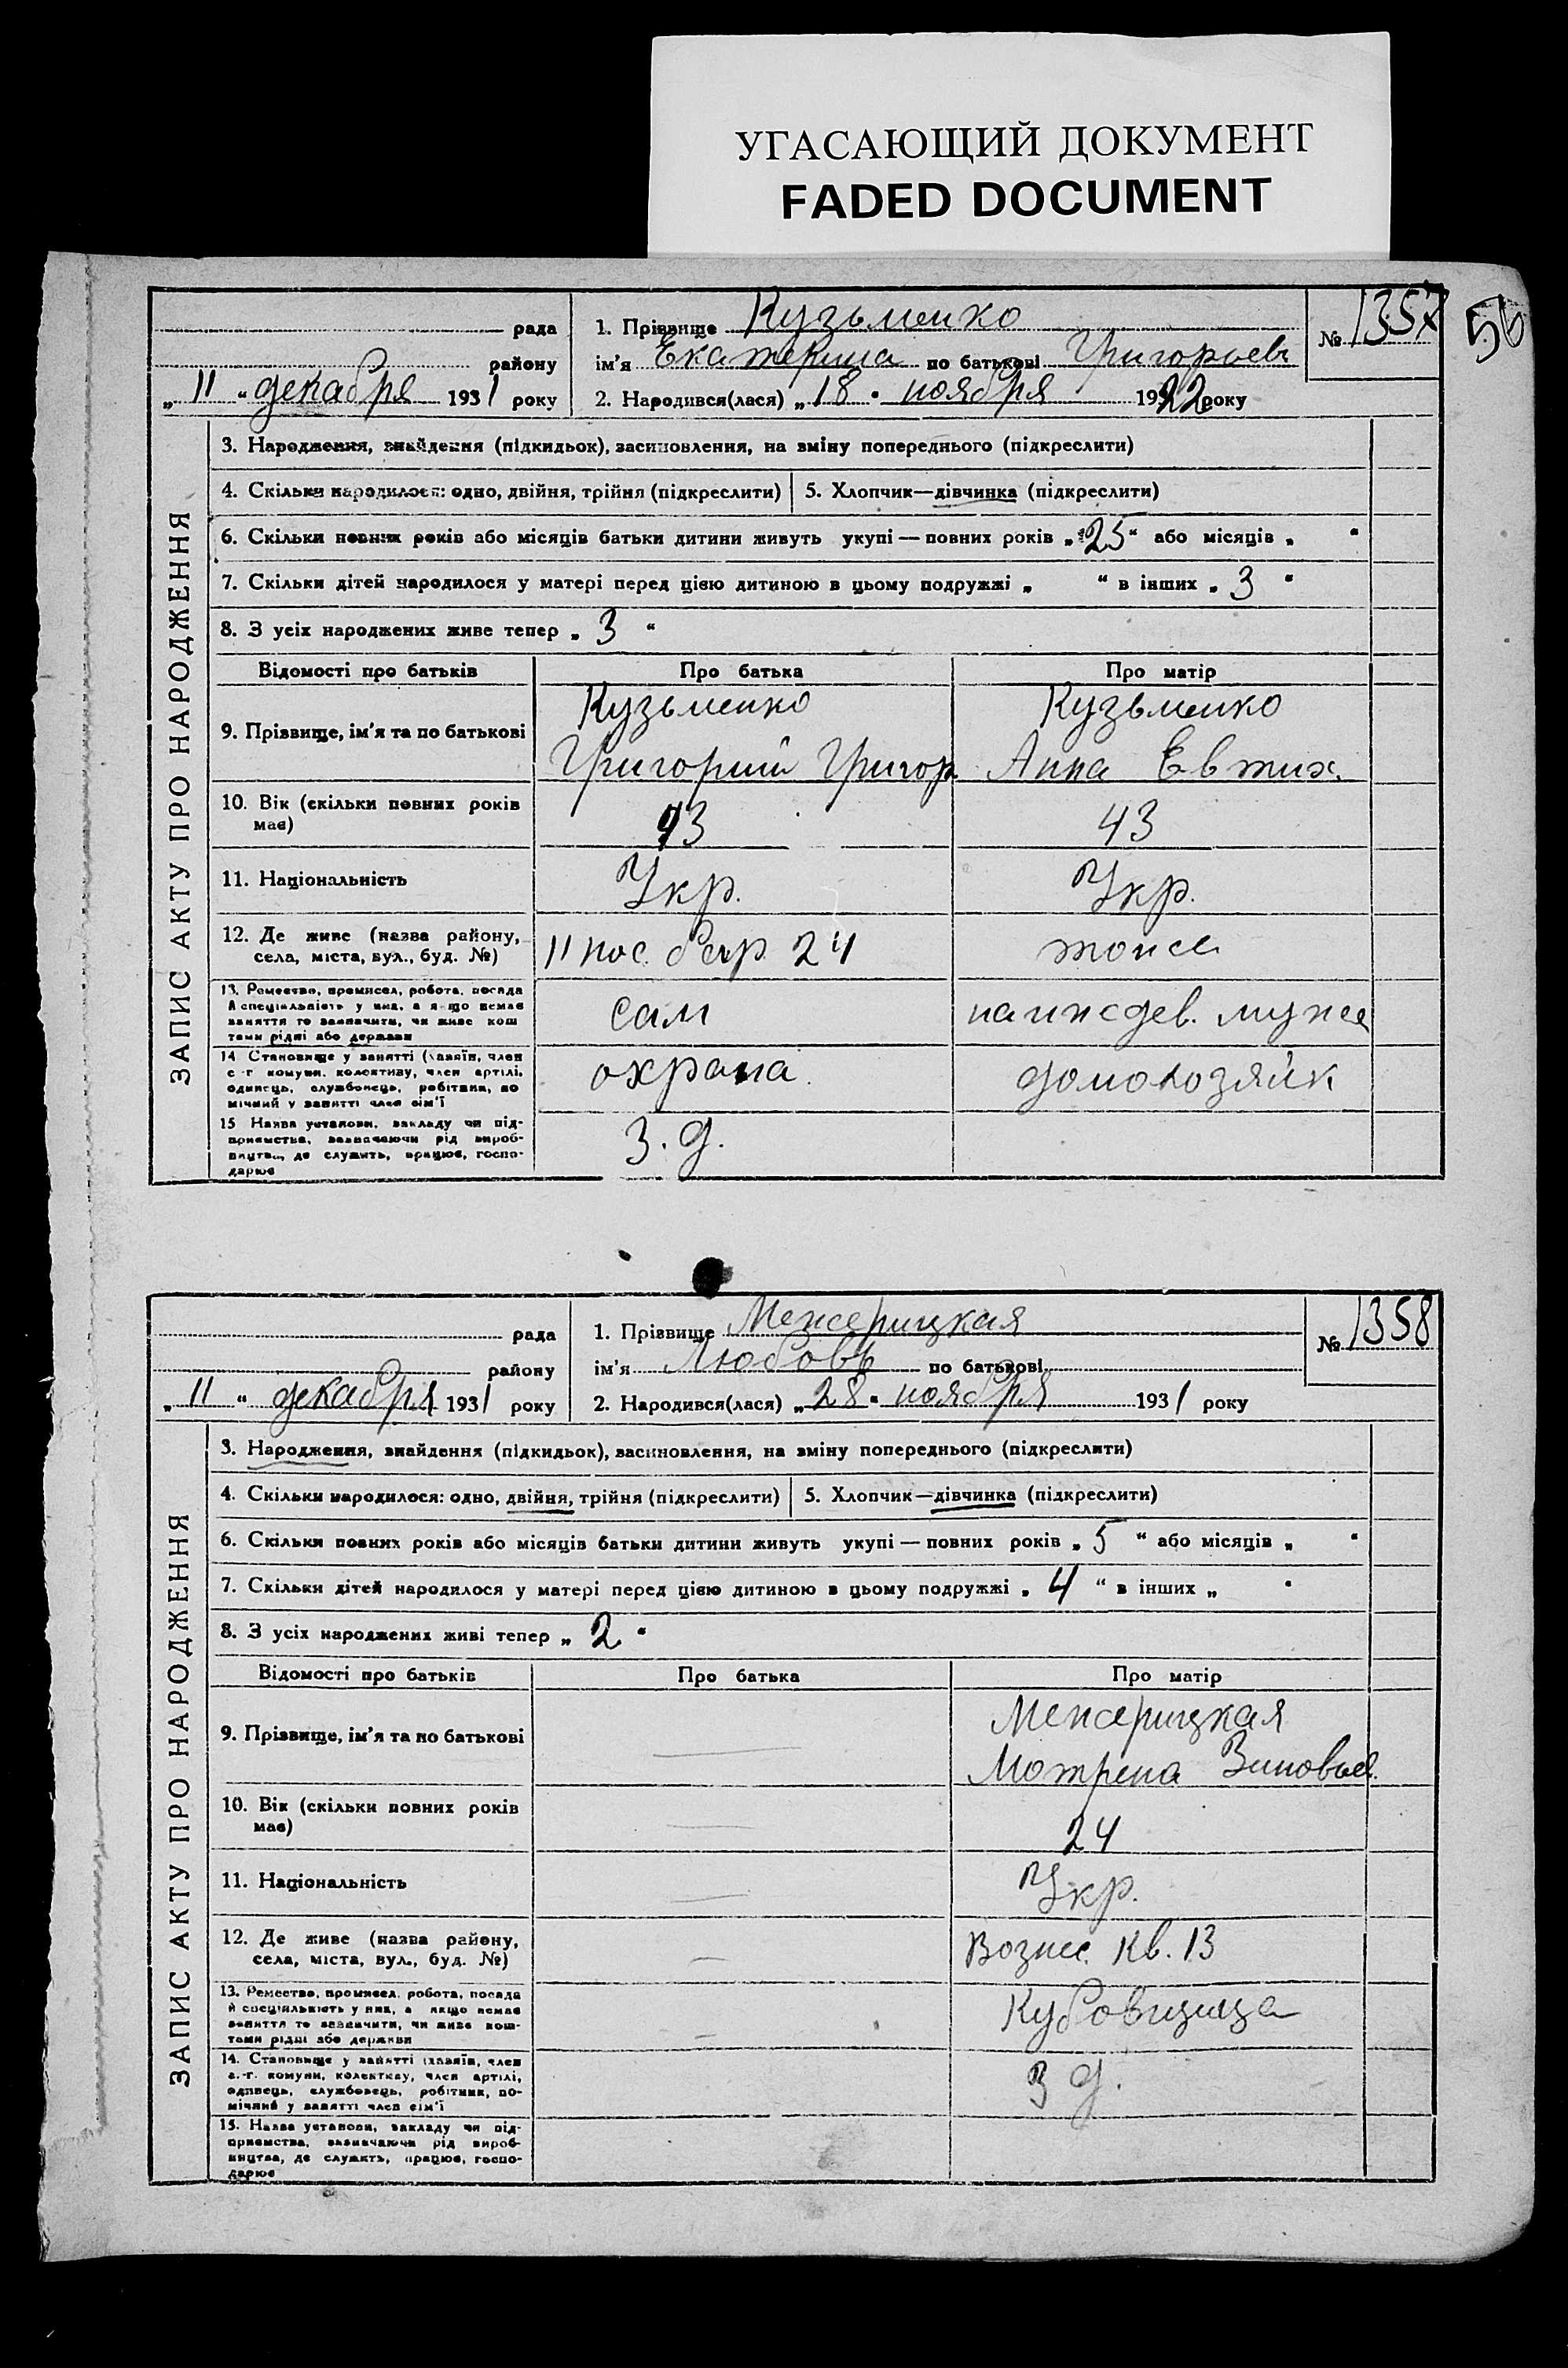 УГАСАЮЩИЙ ДОКУМЕНТ
FADED DOCUMENT
56
ЗАПИС АКТУ ПРО НАРОДЖЕННЯ
рада
району
„ 11 “ декабря 1931 року
1. Прізвище Кузьменко
ім'я Екатерина по батькові Григорьев
2. Народився(лася) „ 18 “ ноября 1922 року
№ 1357
3. Народження, знайдення (підкидьок), засиновлення, на зміну попереднього (підкреслити)
4. Скільки народилося: одно, двійня, трійня (підкреслити)
5. Хлопчик—дівчинка (підкреслити)
6. Скільки повних років або місяців батьки дитини живуть укупі — повних років „ 25 “ або місяців „ “
7. Скільки дітей народилося у матері перед цією дитиною в цьому подружжі „ “ в інших „ 3 “
8. З усіх народжених живе тепер „ 3 “
Відомості про батьків Про батька Про матір
9. Прізвище, ім'я та по батькові
Кузьменко
Григорий Григор
Кузьменко
Анна Евтих.
10. Вік (скільки повних років має)
43
43
11. Національність
Укр.
Укр.
12. Де живе (назва району,
села, міста, вул., буд. №)
11 пос. 24
тоже
13. Ремество, промисел, робота, посада
й спеціяльність у них, а якщо немає
заняття то зазначити, чи живе кош
тами рідні або держави
сам
на иждев. мужа
14 Становище у занятті (хазяїн, член
с.-г. комуни, колективу, член артілі,
одинець, службовець, робітник, по
мічний у занятті член сім'ї
охрана
домохозяйк
15 Назва установи, закладу чи під-
приємства, зазначаючи рід вироб-
ництва, де служить, працює, госпо-
дарює
З. д.
ЗАПИС АКТУ ПРО НАРОДЖЕННЯ
рада
району
„ 11 “ декабря 1931 року
1. Прізвище Межерицкая
ім'я Любовь по батькові
2. Народився(лася) „ 28 “ ноября 1931 року
№ 1358
3. Народження, знайдення (підкидьок), засиновлення, на зміну попереднього (підкреслити)
4. Скільки народилося: одно, двійня, трійня (підкреслити)
5. Хлопчик—дівчинка (підкреслити)
6. Скільки повних років або місяців батьки дитини живуть укупі — повних років „ 5 “ або місяців „ “
7. Скільки дітей народилося у матері перед цією дитиною в цьому подружжі „ 4 “ в інших „ “
8. З усіх народжених живі тепер „ 2 “
Відомості про батьків Про батька Про матір
9. Прізвище, ім'я та по батькові
Межерицкая
Мотрена Зиновьев.
10. Вік (скільки повних років
має)
24
11. Національність
Укр.
12. Де живе (назва району,
села, міста, вул., буд. №)
Вознес. Кв. 13
13. Ремество, промисел, робота, посада
й спеціяльність у них, а якщо немає
заняття то зазначити, чи живе кош-
тами рідні або держави
Кубовщица
14. Становище у занятті (хазяїн, член
с.-г. комуни, колективу, член артілі,
одинець, службовець, робітник, по-
мічний у занятті член сім'ї
З д.
15. Назва установи, закладу чи під-
приємства, зазначаючи рід вироб-
ництва, де служить, працює, госпо-
дарює